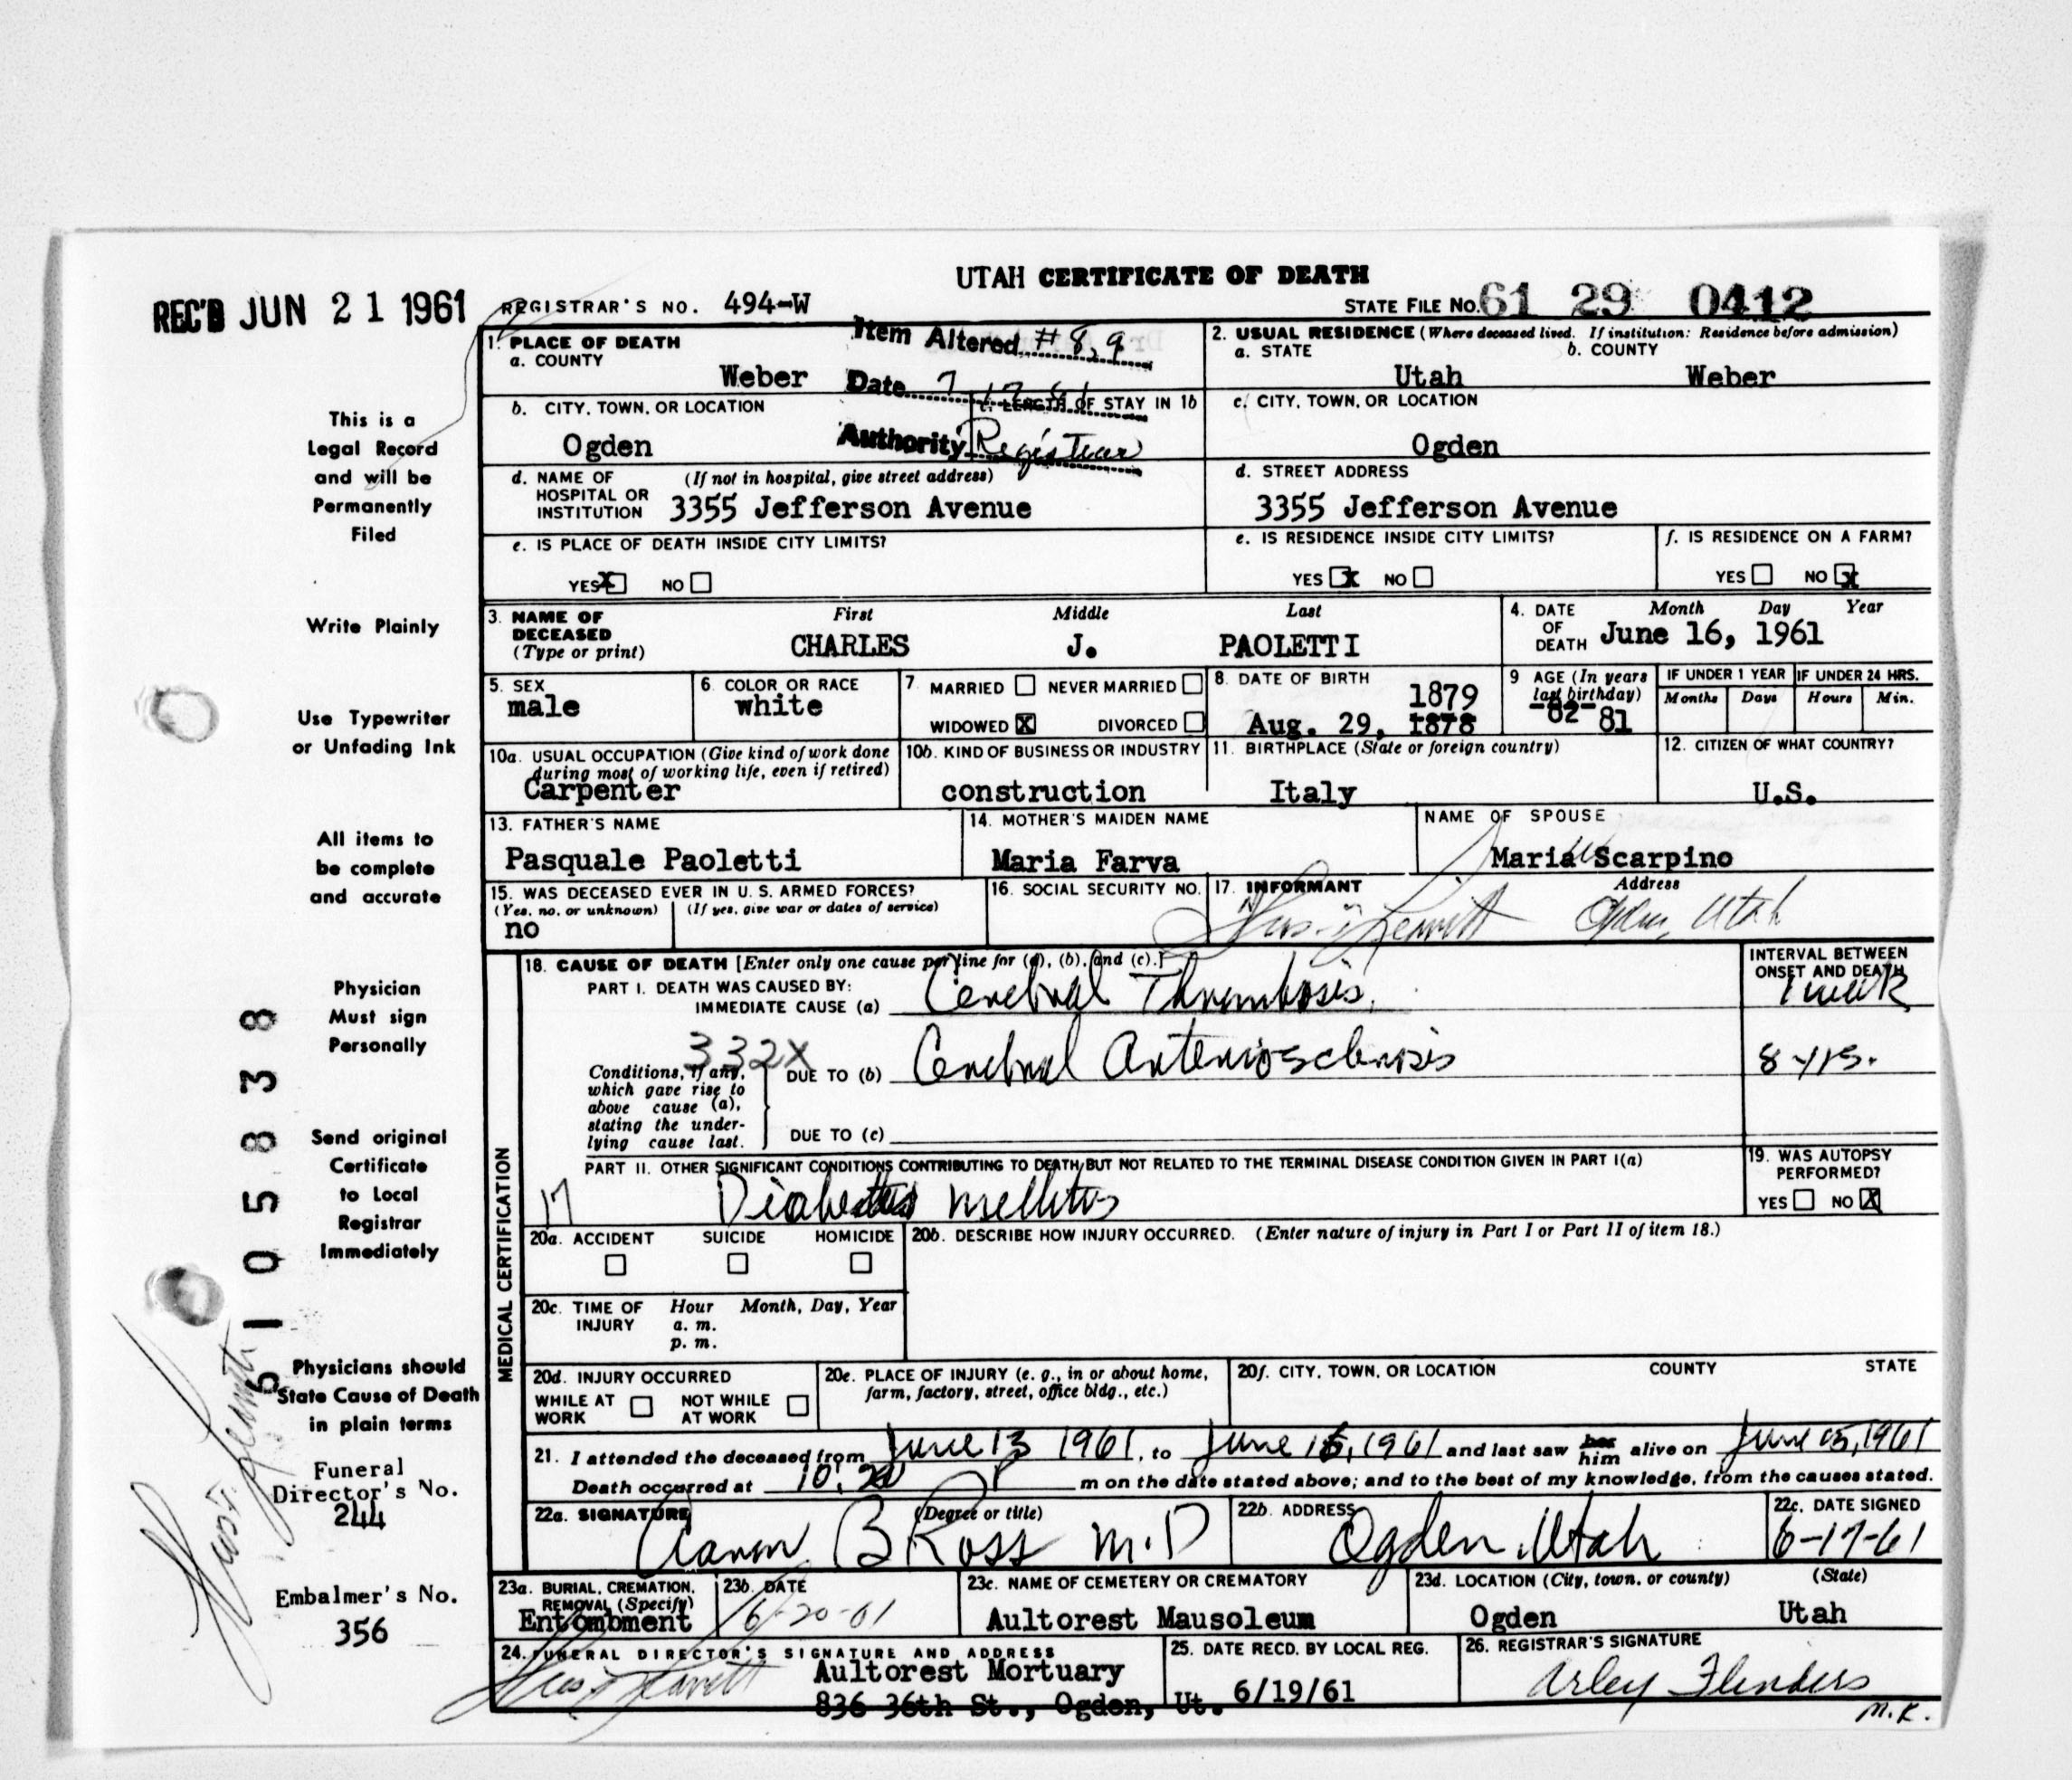 UTAH CERTIFICATE OF DEATH
REC'D JUN 21 1961
REGISTRAR'S NO. 494-W
STATE FILE NO. 61 29 0412
Item Altered #8,9
Date 7
Authority Registrar
1. PLACE OF DEATH
a. COUNTY
Weber
2. USUAL RESIDENCE (Where deceased lived. If institution: Residence before admission)
a. STATE
Utah
b. COUNTY
Weber
b. CITY, TOWN, OR LOCATION
Ogden
c. LENGTH OF STAY IN 1b
c. CITY, TOWN, OR LOCATION
Ogden
d. NAME OF HOSPITAL OR INSTITUTION
(If not in hospital, give street address)
3355 Jefferson Avenue
d. STREET ADDRESS
3355 Jefferson Avenue
e. IS PLACE OF DEATH INSIDE CITY LIMITS?
YES X NO
e. IS RESIDENCE INSIDE CITY LIMITS?
YES X NO
f. IS RESIDENCE ON A FARM?
YES NO X
3. NAME OF DECEASED (Type or print)
First Middle Last
CHARLES J. PAOLETTI
4. DATE OF DEATH
Month Day Year
June 16, 1961
5. SEX
male
6. COLOR OR RACE
white
7. MARRIED NEVER MARRIED
WIDOWED X DIVORCED
8. DATE OF BIRTH
1879
Aug. 29, 1878
9 AGE (In years last birthday)
82 81
IF UNDER 1 YEAR
Months Days
IF UNDER 24 HRS.
Hours Min.
10a. USUAL OCCUPATION (Give kind of work done during most of working life, even if retired)
Carpenter
10b. KIND OF BUSINESS OR INDUSTRY
construction
11. BIRTHPLACE (State or foreign country)
Italy
12. CITIZEN OF WHAT COUNTRY?
U.S.
13. FATHER'S NAME
Pasquale Paoletti
14. MOTHER'S MAIDEN NAME
Maria Farva
NAME OF SPOUSE
Maria Scarpino
15. WAS DECEASED EVER IN U. S. ARMED FORCES?
(Yes, no, or unknown) (If yes, give war or dates of service)
no
16. SOCIAL SECURITY NO.
17. INFORMANT
Address
Ogden, Utah
MEDICAL CERTIFICATION
18. CAUSE OF DEATH [Enter only one cause per line for (a), (b), and (c).]
PART I. DEATH WAS CAUSED BY:
IMMEDIATE CAUSE (a) Cerebral Thrombosis
INTERVAL BETWEEN ONSET AND DEATH
1 week
332X
Conditions, if any, which gave rise to above cause (a), stating the underlying cause last.
DUE TO (b) Cerebral Arteriosclerosis
8 yrs.
DUE TO (c)
PART II. OTHER SIGNIFICANT CONDITIONS CONTRIBUTING TO DEATH BUT NOT RELATED TO THE TERMINAL DISEASE CONDITION GIVEN IN PART I(a)
17
Diabetes mellitus
19. WAS AUTOPSY PERFORMED?
YES NO X
20a. ACCIDENT SUICIDE HOMICIDE
20b. DESCRIBE HOW INJURY OCCURRED. (Enter nature of injury in Part I or Part II of item 18.)
20c. TIME OF INJURY
Hour Month, Day, Year
a. m.
p. m.
20d. INJURY OCCURRED
WHILE AT WORK NOT WHILE AT WORK
20e. PLACE OF INJURY (e. g., in or about home, farm, factory, street, office bldg., etc.)
20f. CITY, TOWN, OR LOCATION COUNTY STATE
21. I attended the deceased from June 13 1961, to June 15, 1961 and last saw her him alive on June 15, 1961
Death occurred at 10:20 P m on the date stated above; and to the best of my knowledge, from the causes stated.
22a. SIGNATURE (Degree or title)
Aaron B Ross M.D
22b. ADDRESS
Ogden, Utah
22c. DATE SIGNED
6-17-61
23a. BURIAL, CREMATION, REMOVAL (Specify)
Entombment
23b. DATE
6-20-61
23c. NAME OF CEMETERY OR CREMATORY
Aultorest Mausoleum
23d. LOCATION (City, town, or county) (State)
Ogden Utah
24. FUNERAL DIRECTOR'S SIGNATURE AND ADDRESS
Aultorest Mortuary
836 36th St., Ogden, Ut.
25. DATE RECD. BY LOCAL REG.
6/19/61
26. REGISTRAR'S SIGNATURE
Arley Flinders
M.K.
This is a
Legal Record
and will be
Permanently
Filed
Write Plainly
Use Typewriter
or Unfading Ink
All items to
be complete
and accurate
Physician
Must sign
Personally
Send original
Certificate
to Local
Registrar
Immediately
Physicians should
State Cause of Death
in plain terms
Funeral
Director's No.
244
Embalmer's No.
356
61058 38